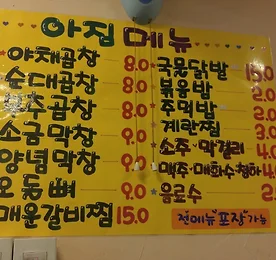 아짐 메뉴
야채곱창 8.0
순대곱창 8.0
곱창 8.0
소금막창 9.0
양념막창 9.0
오돌뼈 9.0
매운갈비찜 15.0
국물닭발
볶음밥 2.0
주먹밥 2.0
계란찜 3.0
소주·막걸리 4.0
맥주·매화수 청하 4.0
음료수
전메뉴 "포장" 가능